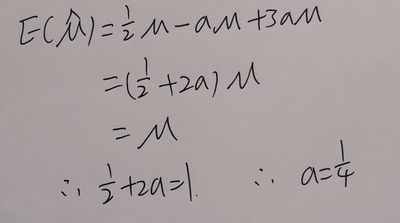 E(μ̂)=½μ-aμ+3aμ
=(½+2a)μ
=μ
∴ ½+2a=1. ∴ a=¼